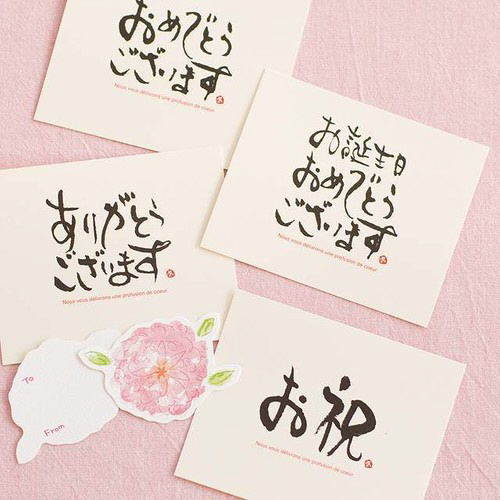 おめでとう
ございます
Nous vous délivrons une profusion de coeur.
お誕生日
おめでとう
ございます
Nous vous délivrons une profusion de coeur.
ありがとう
ございます
Nous vous délivrons une profusion de coeur.
お祝
Nous vous délivrons une profusion de coeur.
To
From